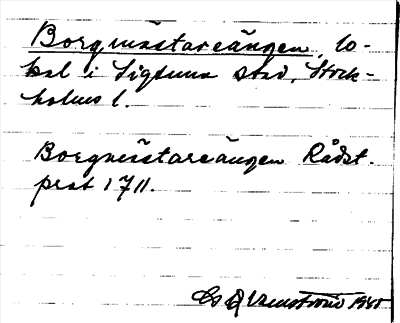 Borgmästareängen, lo-
kal i Sigtuna stad, Stock-
holms l.
Borgmästareängen Rådst.
prot 1711.